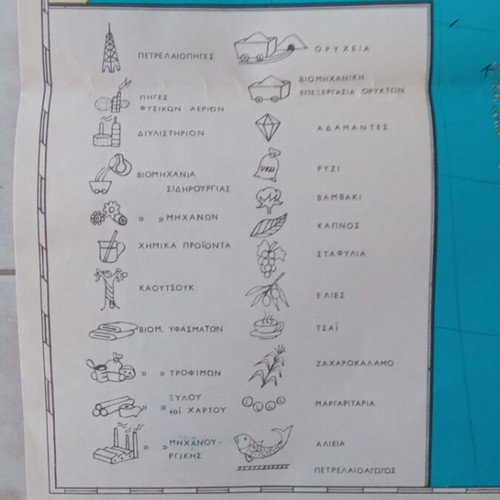 ΠΕΤΡΕΛΑΙΟΠΗΓΕΣ
ΠΗΓΕΣ
ΦΥΣΙΚΩΝ ΑΕΡΙΩΝ
ΔΙΥΛΙΣΤΗΡΙΟΝ
ΒΙΟΜΗΧΑΝΙΑ
ΣΙΔΗΡΟΥΡΓΙΑΣ
» » ΜΗΧΑΝΩΝ
ΧΗΜΙΚΑ ΠΡΟΪΟΝΤΑ
ΚΑΟΥΤΣΟΥΚ
ΒΙΟΜ. ΥΦΑΣΜΑΤΩΝ
» » ΤΡΟΦΙΜΩΝ
ΞΥΛΟΥ
» » καί ΧΑΡΤΟΥ
» » ΜΗΧΑΝΟΥ-
ΡΓΙΚΗΣ
ΟΡΥΧΕΙΑ
ΒΙΟΜΗΧΑΝΙΚΗ
ΕΠΕΞΕΡΓΑΣΙΑ ΟΡΥΚΤΩΝ
ΑΔΑΜΑΝΤΕΣ
ΡΥΖΙ
ΒΑΜΒΑΚΙ
ΚΑΠΝΟΣ
ΣΤΑΦΥΛΙΑ
ΕΛΙΕΣ
ΤΣΑΪ
ΖΑΧΑΡΟΚΑΛΑΜΟ
ΜΑΡΓΑΡΙΤΑΡΙΑ
ΑΛΙΕΙΑ
ΠΕΤΡΕΛΑΙΟΑΓΩΓΟΣ